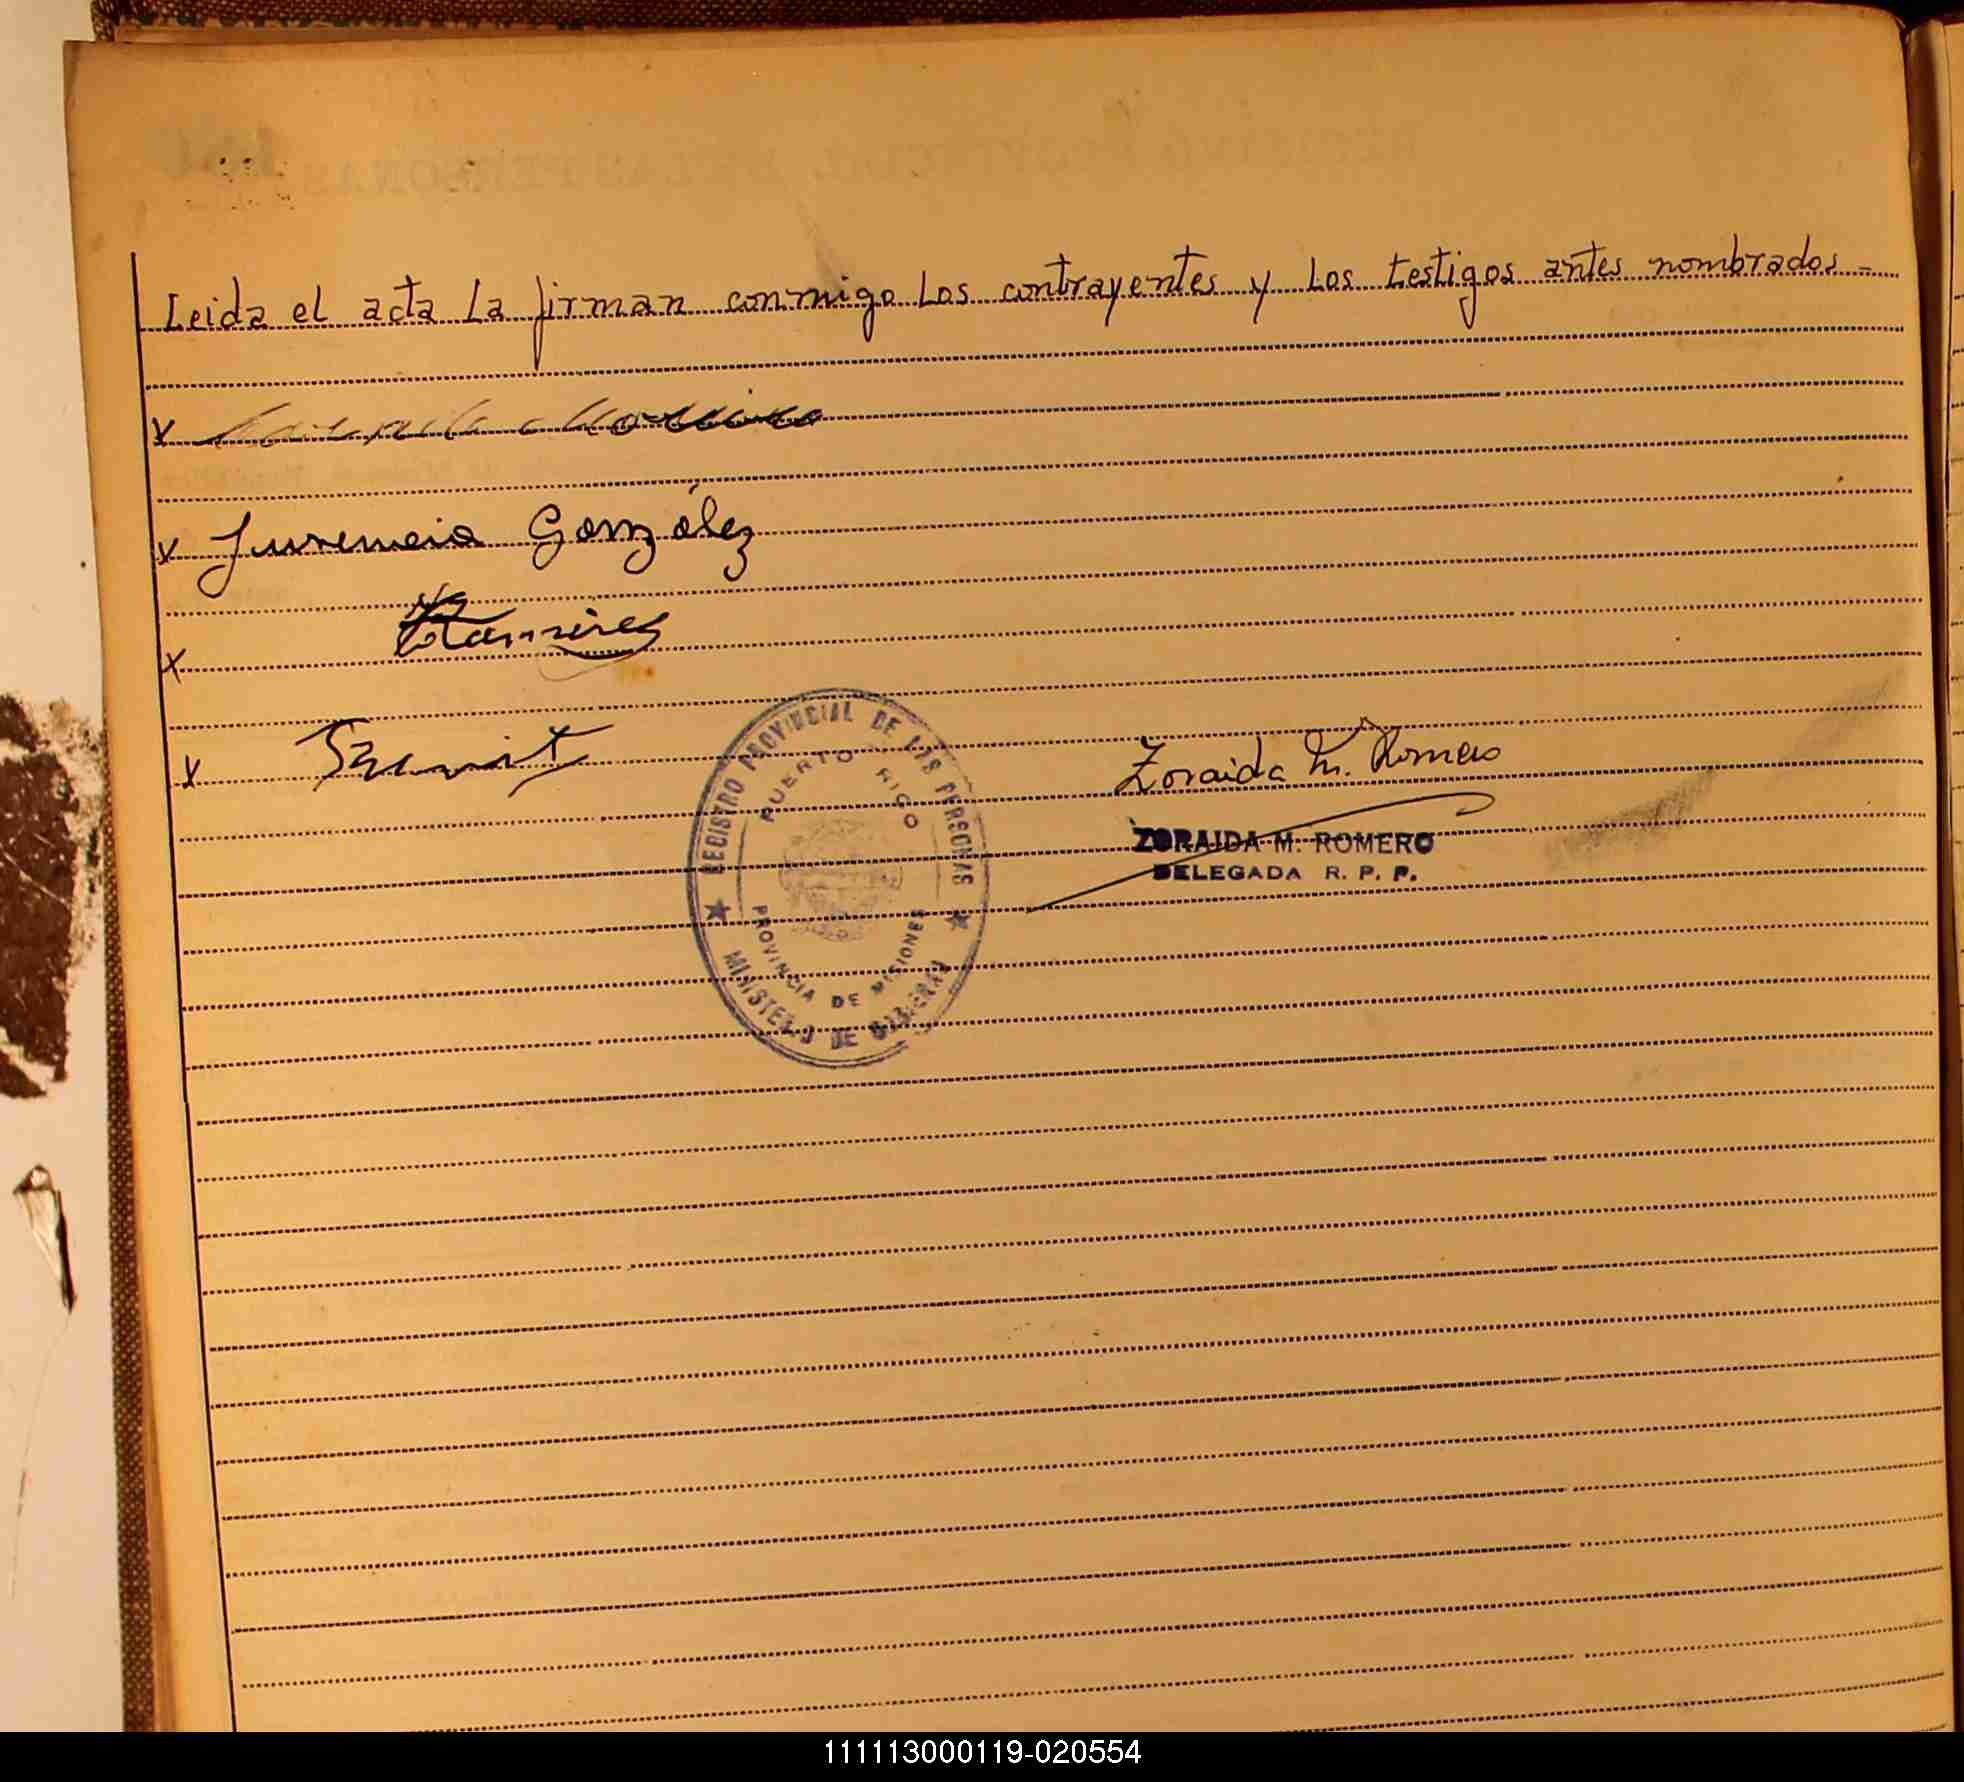 Leida el acta la firman conmigo los contrayentes y los testigos antes nombrados -
x
x Juremeia González
x Ramirez
x
Zoraida M. Romero
ZORAIDA M. ROMERO
DELEGADA R. P. P.
REGISTRO PROVINCIAL DE LAS PERSONAS
PUERTO RICO
PROVINCIA DE MISIONES
MINISTERIO DE GOBIERNO
111113000119-020554